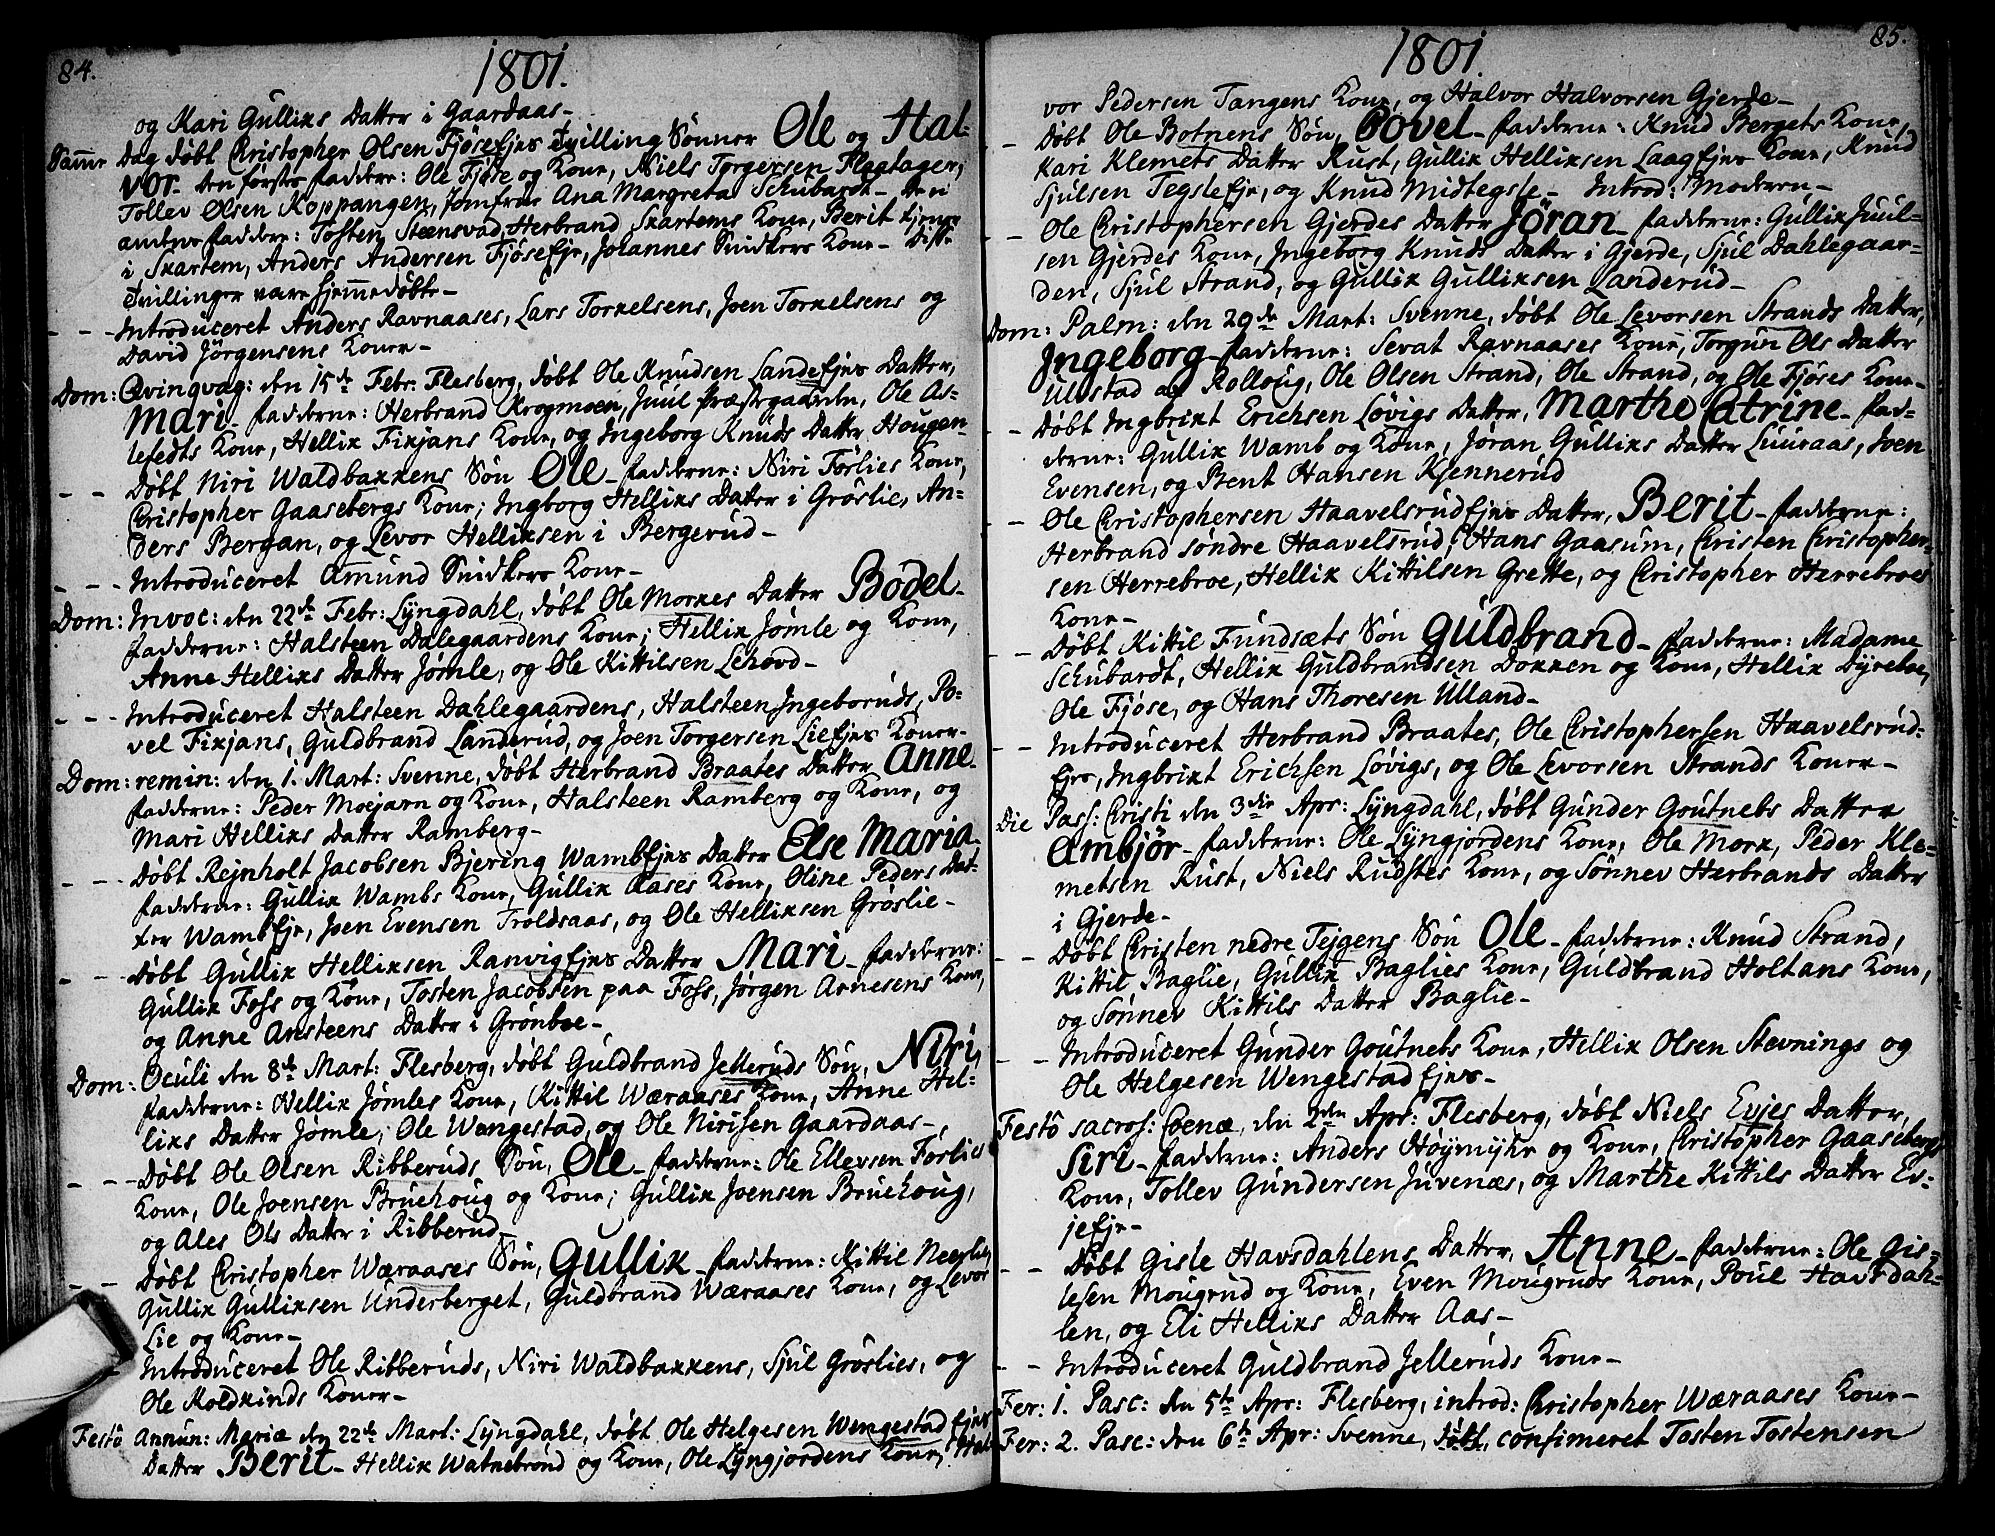 84.
1801.
og Kari Gullixs Datter i Gaardaas-
Samme Dag døbt Christopher Olsen Fjøsefjer Tvilling Sønner Ole og Hal-
vor- den første fadderne: Ole Fjøse og Kone, Niels Torgersen Flaatager,
Tollev Olsen Koppangen, Jomfrue Ana Margreta Schubardt- den
anden fadderne: Tosten Steensvad, Herbrand Skartems Kone, Berit tjener
i Skartem, Anders Andersen Fjøse Eje, Johannes Snidkers Kone- disse
Tvillinger vare hjemmedøbte-
- - - Introduceret Anders Ravnaases, Lars Torkelsens, Joen Torkelsens og
David Jörgensens Koner-
Dom: Qvinqvag: den 15de Febr: Flesberg, døbt Ole Knudsen Landefjer Datter,
Mari- fadderne: Herbrand Krogmoen, Juul Præstegaarden, Ole As-
lefedts Kone, Hellix Fixjans Kone, og Ingeborg Knuds Datter Hougen-
- - døbt Niri Waldbakkens Søn Ole- fadderne: Niri Førlies Kone,
Christopher Gaasebergs Kone; Ingborg Hellixs Datter i Grøslie, An-
ders Bergan, og Levor Hellixsen i Bergerud-
- - - Introduceret Amund Snidkers Kone-
Dom: Invoc: den 22de Febr: Lyngdahl, døbt Ole Morkes Datter Bodel-
fadderne: Halsteen Dalegaardens Kone; Hellix Jømle og Kone,
Anne Hellixs Datter Jømle, og Ole Kittilsen Lehovd-
- - - Introduceret Halsteen Dahlegaardens, Halsteen Ingeboruds, Po-
vel Fixjans, Guldbrand Landerud, og Joen Torgersen Liefjer Koner-
Dom: remin: den 1. Mart: Svenne, døbt Herbrand Braates Datter Anne-
fadderne: Peder Moejarn og Kone, Halsteen Ramberg og Kone, og
Mari Hellixs Datter Ramberg-
- - - døbt Rejnholt Jacobsen Bjering WambEjer Datter Else Maria-
fadderne: Gullix Wambs Kone, Gullix Aases Kone, Oline Peders Dat-
ter WambEje, Joen Evensen Troldsaas, og Ole Hellixsen Grøslie-
- - døbt Gullix Hellixsen Ranvigfjes Datter Mari- fadderne:
Gullix Foss og Kone, Tosten Jacobsen paa Foss, Jørgen Arnesens Kone,
og Anne Ansteens Datter i Grønboe-
Dom: Oculi den 8de Mart: Flesberg, døbt Guldbrand Jelleruds Søn, Niri,
fadderne: Hellix Jømles Kone, Kittil Wæraases Kone, Anne Hel-
lixs Datter Jømle; Ole Wengestad, og Ole Nirisen Gaardaas-
- - - døbt Ole Olsen Ribberuds Søn, Ole- fadderne: Ole Ellevsen Førlies
Kone, Ole Joensen Bruehoug og Kone; Gullix Joensen Bruehoug,
og Ales Ols Datter i Ribberud
- - døbt Christopher Wæraases Søn, Gullix- fadderne: Kittil Neerlie,
Gullix Gullixsen Underberget, Guldbrand Wæraases Kone, og Levor
Lie og Kone-
- Introduceret Ole Ribberuds, Niri Waldbakkens, Sjul Grøslies, og
Ole Koldkinds Koner-
Festo Annun: Mariæ den 22de Mart: Lyngdahl, døbt Ole Helgesen Wengestad Ejes
Datter Berit- Hellix Watnebrønd og Kone, Ole Lyngjordens Kone, Hal-
85.
1801.
vor Pedersen Tangens Kone, og Halvor Halvorsen Gjerde-
- døbt Ole Botnens Søn, Povel- fadderne: Knud Bergets Kone,
Kari Klemets Datter Rust, Gullix Hellixsen Laagfjes Kone, Knud
Sjulsen TegsleEje, og Knud Midtegsle- Introd: Moderen-
- - Ole Christophersen Gjerdes Datter Jöran- fadderne: Gullix Juul-
sen Gjerdes Kone, Ingeborg Knuds Datter i Gjerde, Sjul Dahlegaar-
den, Sjul Strand, og Gullix Gullixsen Landerud-
Dom: Palm: den 29de Mart: Svenne, døbt Ole Levorsen Strands Datter,
Ingeborg- fadderne: Sevat Ravnaases Kone, Torgun Ols Datter
Ulstad af Rolloug, Ole Olsen Strand, Ole Strand, og Ole Fjøses Kone-
- døbt Ingbrixt Erichsen Løvigs Datter, Marthe Catrine- fad-
derne: Gullix Wamb og Kone, Jöran Gullixs Datter Luuraas, Joen
Evensen, og Bent Hansen Kjennerud
- Ole Christophersen Haavelsrudfjes Datter, Berit- fadderne:
Herbrand søndre Haavelsrud, Hans Gaasum, Christen Christopher-
sen Herrebroe, Hellix Kittilsen Grette, og Christopher Herrebroes
Kone-
- døbt Kittil Fundsæts Søn Guldbrand- fadderne: Madame
Schubardt, Hellix Guldbrandsen Dokken og Kone, Hellix Dyreboe,
Ole Fjøse, og Hans Thoresen Ulland-
- - Introduceret Herbrand Braates, Ole Christophersen Haavelsrud-
Ejer, Ingbrixt Erichsen Løvigs, og Ole Levorsen Strands Koner-
Die Pass: Christi den 3die Apr: Lyngdahl, døbt Gunder Goutnebs Datter
Ambjør- fadderne: Ole Lyngjordens Kone, Ole Mork, Peder Kle-
metsen Rust, Niels Rudstes Kone, og Sønnev Herbrands Datter
i Gjerde-
- - døbt Christen nedre Tejgens Søn Ole- fadderne: Knud Strand,
Kittil Baglie, Gullix Baglies Kone, Guldbrand Holtans Kone,
og Sønnev Kittils Datter Baglie-
- - Introduceret Gunder Goutnebs Kone, Hellix Olsen Stevnings og
Ole Helgesen Wengestad Ejes-
Festo sacros: Coenæ, den 2den Apr: Flesberg, døbt Niels Evjes Datter,
Siri- fadderne: Anders Høymyhr og Kone, Christopher Gaasebergs
Kone, Tollev Gundersen Juvenæs, og Marthe Kittils Datter Ev-
jeEje-
- - døbt Gisle Havsdahlens Datter, Anne- fadderne: Ole Gis-
lesen Mougrud og Kone, Even Mougruds Kone, Poul Havsdah-
len, og Eli Hellixs Datter Aas-
- - Introduceret Guldbrand Jelleruds Kone-
Fer: 1. Pasc: den 5te Apr: Flesberg, introd: Christopher Wæraases Kone-
Fer: 2. Pasc: den 6te Apr: Svenne, døbt, confimeret Tosten Tostensen